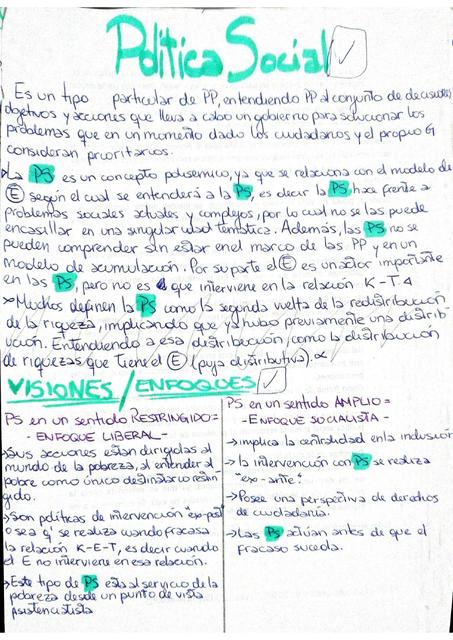 Política Social
Es un tipo particular de PP, entendiendo PP al conjunto de decisiones,
objetivos y acciones que lleva a cabo un gobierno para solucionar los
problemas que en un momento dado los ciudadanos y el propio G
consideran prioritarios.
La PS es un concepto polisemico, ya que se relaciona con el modelo de
E según el cual se entenderá a la PS, es decir la PS hace frente a
problemas sociales actuales y complejos, por lo cual no se las puede
encasillar en una singularidad temática. Además, las PS no se
pueden comprender sin estar en el marco de las PP y en un
modelo de acumulación. Por su parte el E es un actor importante
en las PS, pero no es el que interviene en la relación K-T
Muchos definen la PS como la segunda vuelta de la redistribución
de la riqueza, implicando que ya hubo previamente una distrib-
ución. Entendiendo a esa distribución como la distribución
de riquezas que tiene el E (puja distributiva).
VISIONES/ENFOQUES
PS en un sentido RESTRINGIDO=
- ENFOQUE LIBERAL-
→Sus acciones estan dirigidas al
mundo de la pobreza, al entender al
pobre como único destinatario restrin
gido.
→Son políticas de intervención "ex-post"
o sea q' se realiza cuando fracasa
la relación K-E-T, es decir cuando
el E no interviene en esa relación.
→Este tipo de PS esta al servicio de la
pobreza desde un punto de vista
asistencialista
PS en un sentido AMPLIO=
-ENFOQUE SOCIALISTA-
→implica la centralidad en la inclusión
→ la intervención con PS se realiza
"exo-ante"
→Posee una perspectiva de derechos
de ciudadania.
→ Las PS actúan antes de que el
fracaso suceda.